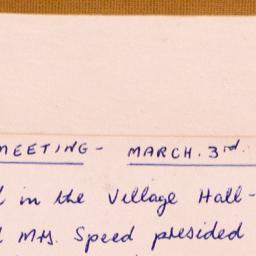 MEETING - MARCH. 3rd.
in the Village Hall -
Mrs. Speed presided